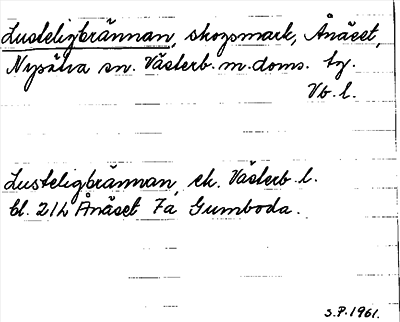 Lusteligbrännan, skogsmark, Ånäset,
Nysätra sn. Västerb. m. doms. tg.
Vb. l.
Lusteligbrännan, ek. Västerb. l.
bl. 21L Ånäset 7a Gumboda.
S.P. 1961.